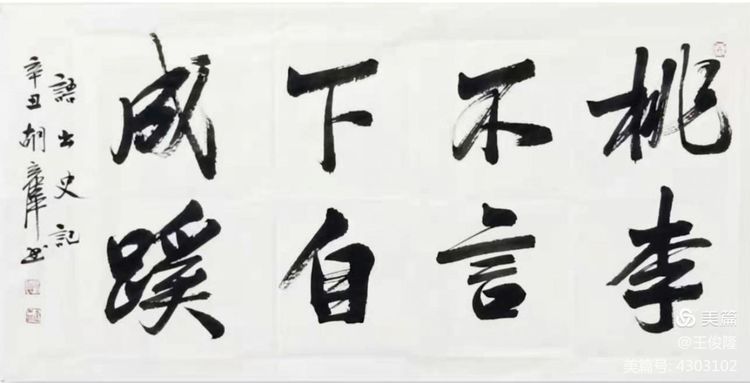 桃李
不言
下自
成蹊
語出史記
辛丑胡立库书
美篇
@王俊隆
美篇号: 4303102